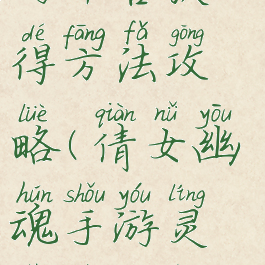 dé fāng fǎ gōng
得方法攻
lüè qiàn nǚ yōu
略(倩女幽
hún shǒu yóu líng
魂手游灵